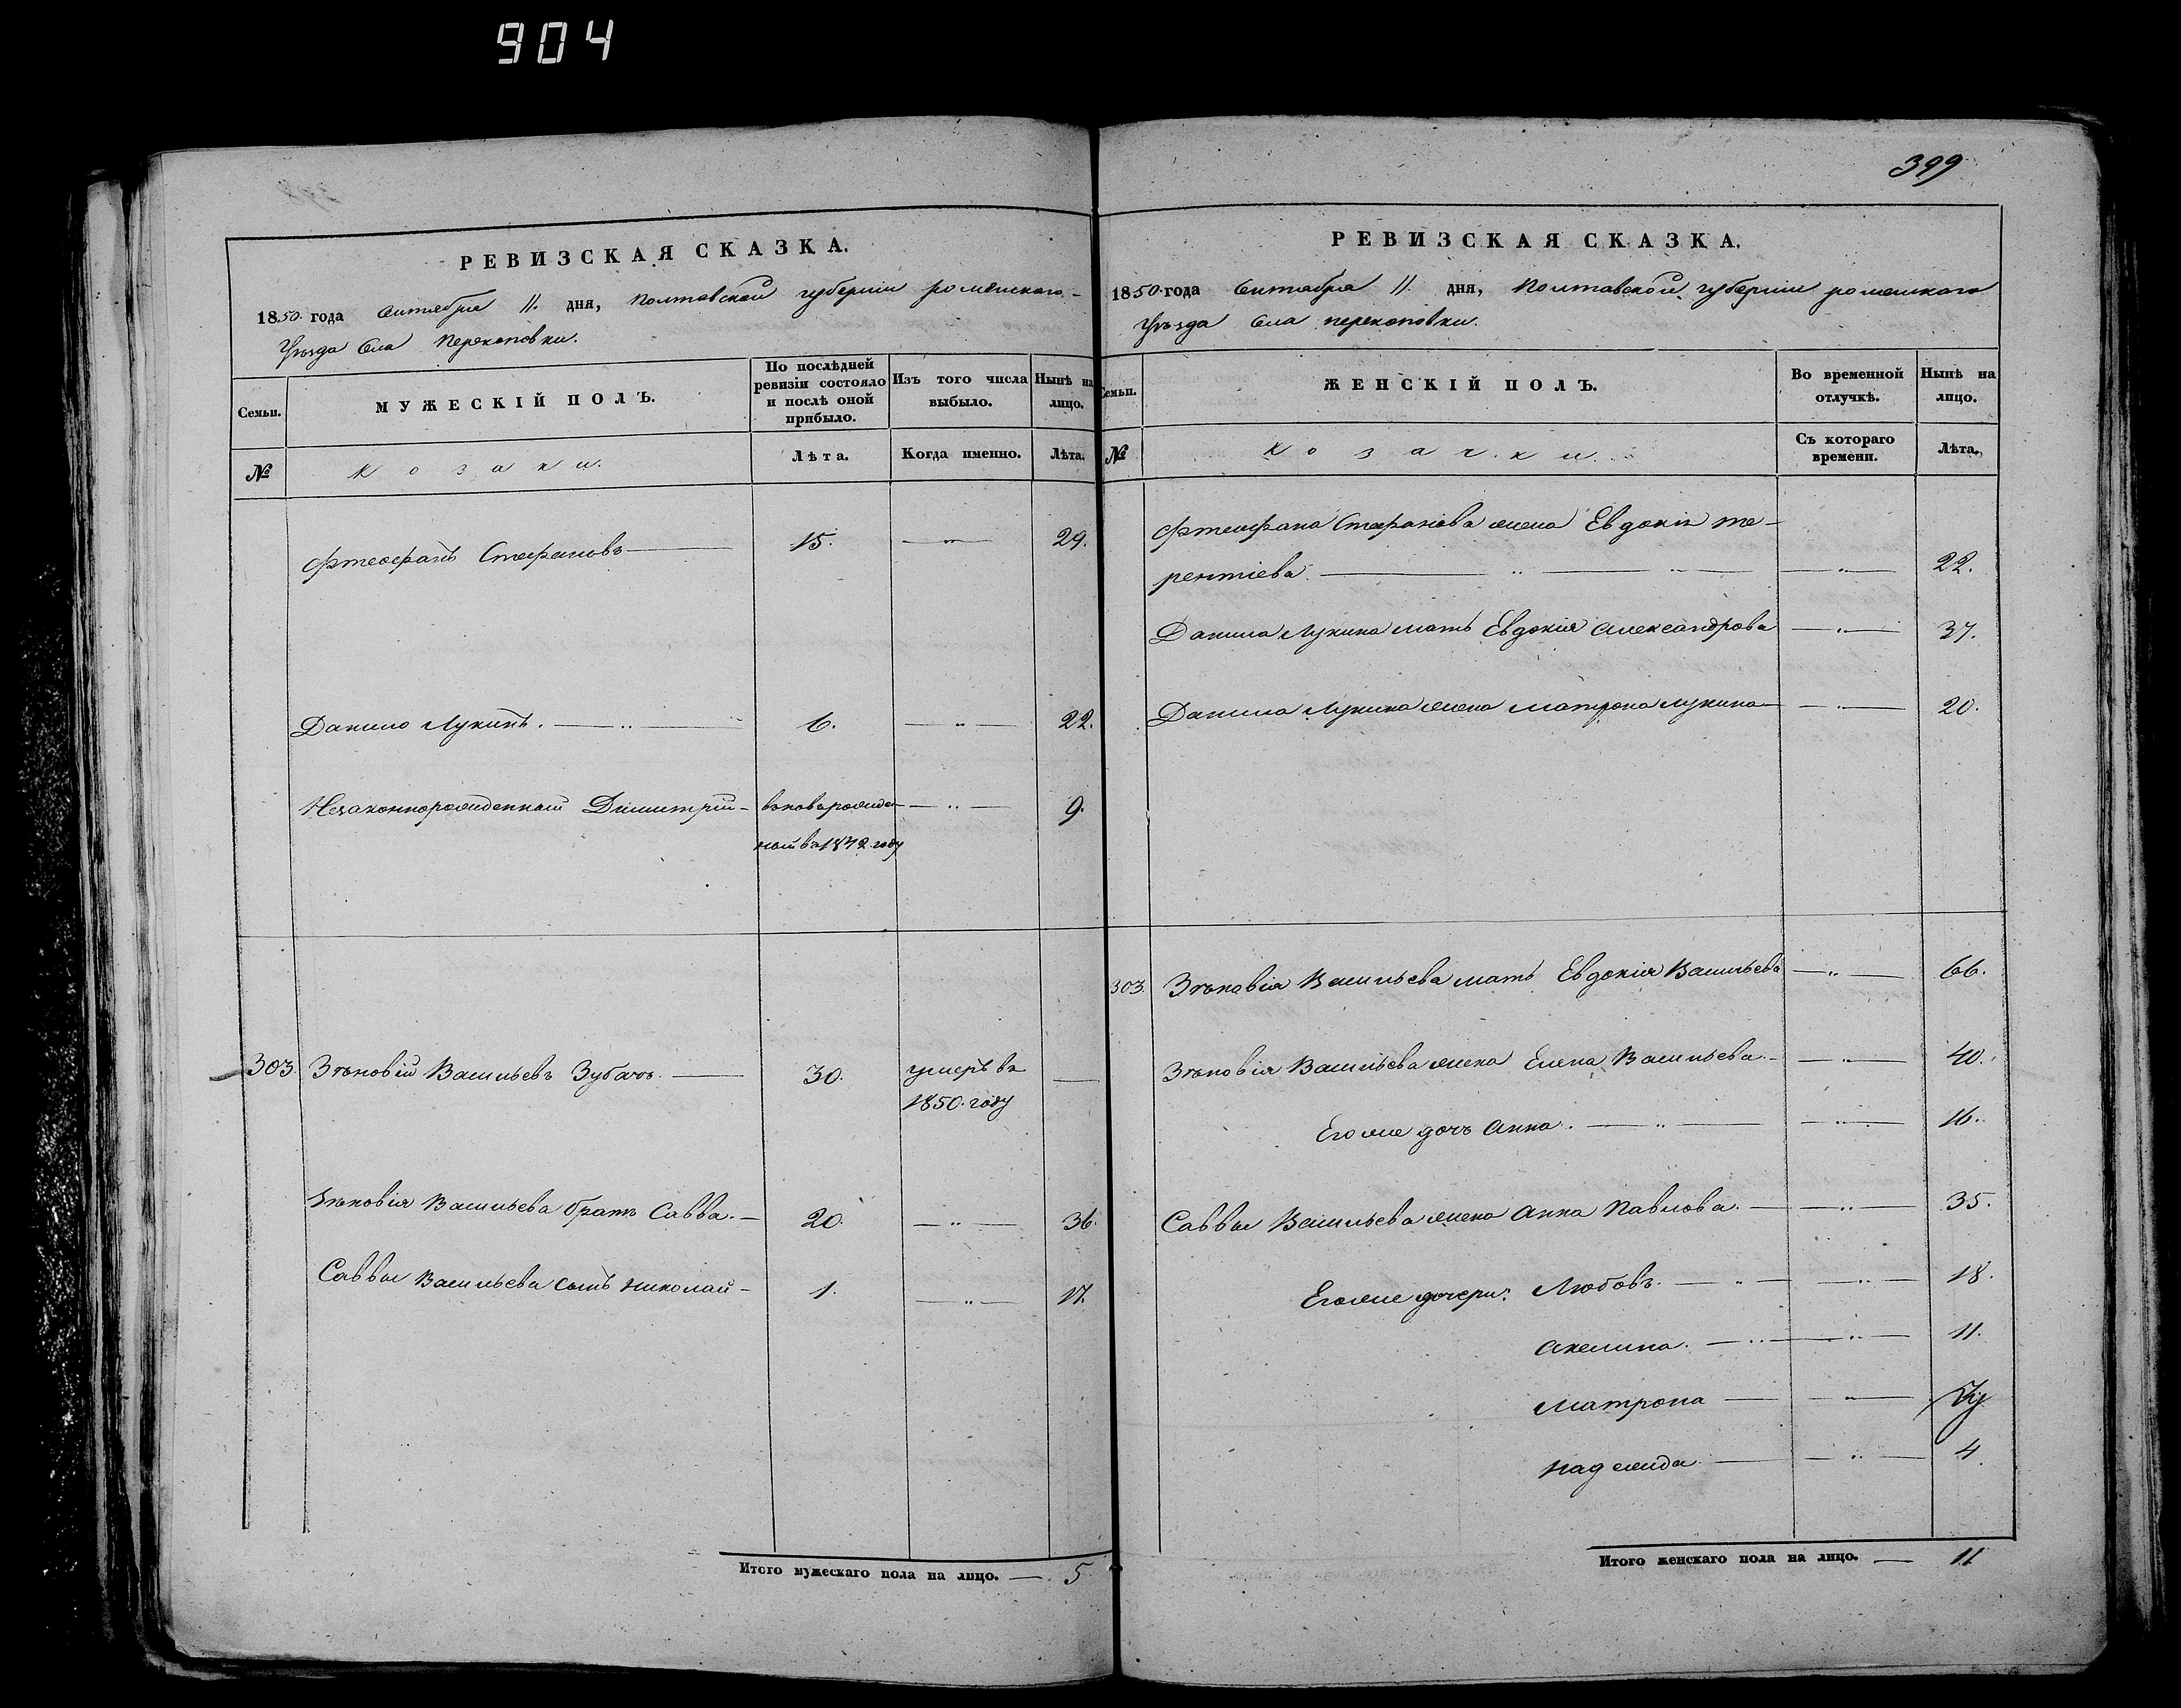 904
РЕВИЗСКАЯ СКАЗКА.
1850 года Октября 11. дня, Полтавской губернии роменского
Уѣзда Села Перекоповки.
Семьи.
МУЖЕСКІЙ ПОЛЪ.
По послѣдней ревизіи состояло и послѣ оной прибыло.
Изъ того числа выбыло.
Нынѣ на лицо.
№
Козаки.
Лѣта.
Когда именно.
Лѣта.
Фтеофанъ Стефановъ 15. 29.
Данило Лукинъ. 6. 22.
Незаконнорожденный Димитрій вновь рожден- 9.
ный въ 1842 году
303. Зѣновій Васильевъ Зубачъ. 30. умеръ въ
1850. году
Зѣновія Васильева братъ Савва. 20. 36.
Саввы Васильева сынъ Николай 1. 17.
Итого мужескаго пола на лицо. 5
399
РЕВИЗСКАЯ СКАЗКА.
1850 года Октября 11. дня, Полтавской губерніи роменскаго
Уѣзда Села перекоповки.
Семьи.
ЖЕНСКІЙ ПОЛЪ.
Во временной отлучкѣ.
Нынѣ на лицо.
№
Козачки.
Съ котораго времени.
Лѣта.
Фтеофана Стефанова жена Евдокія те-
рентіева. 22.
Данила Лукина мать Евдокія Александрова 37.
Данила Лукина жена Матрона Лукина 20.
303. Зѣновія Васильева мать Евдокія Васильева 66.
Зѣновія Васильева жена Елена Васильева. 40.
Его же дочь Анна. 16.
Саввы Васильева жена Анна Павлова. 35.
Его же дочери: Любовь. 18.
Акелина. 11.
Матрона
Надежда 4
Итого женскаго пола на лицо. 11